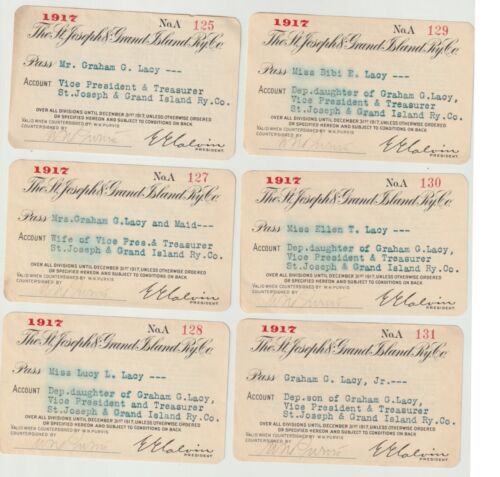 1917 No.A 125
The St. Joseph & Grand Island Ry. Co.
Pass Mr. Graham G. Lacy ---
Account Vice President & Treasurer
St.Joseph & Grand Island Ry.Co.
OVER ALL DIVISIONS UNTIL DECEMBER 31ST 1917, UNLESS OTHERWISE ORDERED
OR SPECIFIED HEREON AND SUBJECT TO CONDITIONS ON BACK
VALID WHEN COUNTERSIGNED BY W.H. PURVIS
COUNTERSIGNED BY
W H Purvis E E Calvin
PRESIDENT.
1917 No.A 127
The St. Joseph & Grand Island Ry. Co.
Pass Mrs.Graham G.Lacy and Maid---
Account Wife of Vice Pres.& Treasurer
St.Joseph & Grand Island Ry.Co.
OVER ALL DIVISIONS UNTIL DECEMBER 31ST 1917, UNLESS OTHERWISE ORDERED
OR SPECIFIED HEREON AND SUBJECT TO CONDITIONS ON BACK
VALID WHEN COUNTERSIGNED BY W.H. PURVIS
COUNTERSIGNED BY
W H Purvis E E Calvin
PRESIDENT.
1917 No.A 128
The St. Joseph & Grand Island Ry. Co.
Pass Miss Lucy L. Lacy ---
Account Dep.daughter of Graham G.Lacy,
Vice President and Treasurer
St.Joseph & Grand Island Ry.Co.
OVER ALL DIVISIONS UNTIL DECEMBER 31ST 1917, UNLESS OTHERWISE ORDERED
OR SPECIFIED HEREON AND SUBJECT TO CONDITIONS ON BACK
VALID WHEN COUNTERSIGNED BY W.H. PURVIS
COUNTERSIGNED BY
W H Purvis E E Calvin
PRESIDENT.
1917 No.A 129
The St. Joseph & Grand Island Ry. Co.
Pass Miss Bibi E. Lacy ---
Account Dep.daughter of Graham G.Lacy,
Vice President & Treasurer
St.Joseph & Grand Island Ry.Co.
OVER ALL DIVISIONS UNTIL DECEMBER 31ST 1917, UNLESS OTHERWISE ORDERED
OR SPECIFIED HEREON AND SUBJECT TO CONDITIONS ON BACK
VALID WHEN COUNTERSIGNED BY W.H. PURVIS
COUNTERSIGNED BY
W H Purvis E E Calvin
PRESIDENT.
1917 No.A 130
The St. Joseph & Grand Island Ry. Co.
Pass Miss Ellen T. Lacy ---
Account Dep.daughter of Graham G.Lacy,
Vice President & Treasurer
St.Joseph & Grand Island Ry.Co.
OVER ALL DIVISIONS UNTIL DECEMBER 31ST 1917, UNLESS OTHERWISE ORDERED
OR SPECIFIED HEREON AND SUBJECT TO CONDITIONS ON BACK
VALID WHEN COUNTERSIGNED BY W.H. PURVIS
COUNTERSIGNED BY
W H Purvis E E Calvin
PRESIDENT.
1917 No.A 131
The St. Joseph & Grand Island Ry. Co.
Pass Graham G. Lacy, Jr.---
Account Dep.son of Graham G.Lacy,
Vice President & Treasurer
St.Joseph & Grand Island Ry.Co.
OVER ALL DIVISIONS UNTIL DECEMBER 31ST 1917, UNLESS OTHERWISE ORDERED
OR SPECIFIED HEREON AND SUBJECT TO CONDITIONS ON BACK
VALID WHEN COUNTERSIGNED BY W.H. PURVIS
COUNTERSIGNED BY
W H Purvis E E Calvin
PRESIDENT.